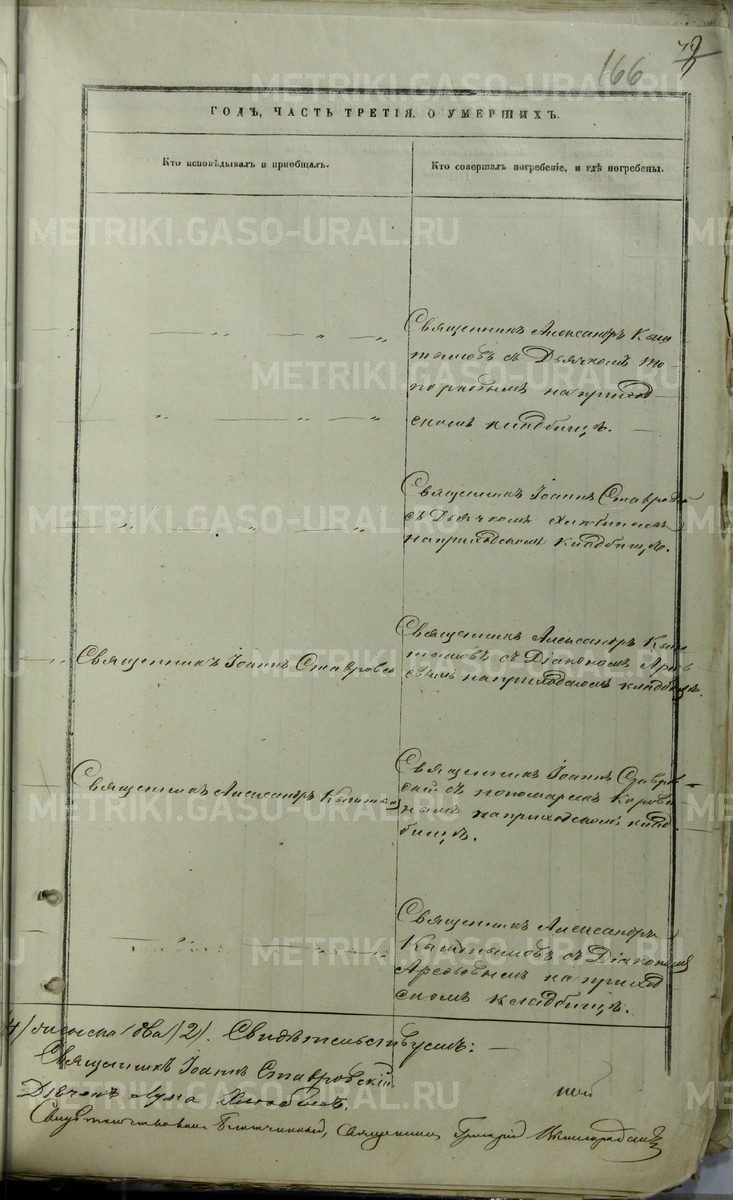 166
ГОДЪ, ЧАСТЬ ТРЕТІЯ, О УМЕРШИХЪ.
Кто исповѣдывалъ и пріобщалъ.
Кто совершалъ погребеніе, и гдѣ погребены.
Священникъ Александръ Кыш
тымовъ съ Дьячкомъ То
порковымъ на приход
скомъ кладбищѣ.
Священникъ Іоаннъ Ставровск
съ Дьячкомъ
на приходскомъ кладбищѣ.
Священникъ Іоаннъ Ставровск
Священникъ Александръ Кыш
тымовъ съ Діакономъ Арѳь
евымъ на приходскомъ кладбищѣ.
Священникъ Александръ Кыштым
Священникъ Іоаннъ Ставров
скій съ пономаремъ Корови
нымъ на приходскомъ клад
бищѣ.
Священникъ Александръ
Кыштымовъ съ Діакономъ
Арефьевымъ на приход
скомъ кладбищѣ.
два (2). Свидѣтельствуемъ:
Священникъ Іоаннъ Ставровскій
Дьячекъ Лука
Свидѣтельствовалъ Благочинный, Священникъ Григорій
METRIKI.GASO-URAL.RU